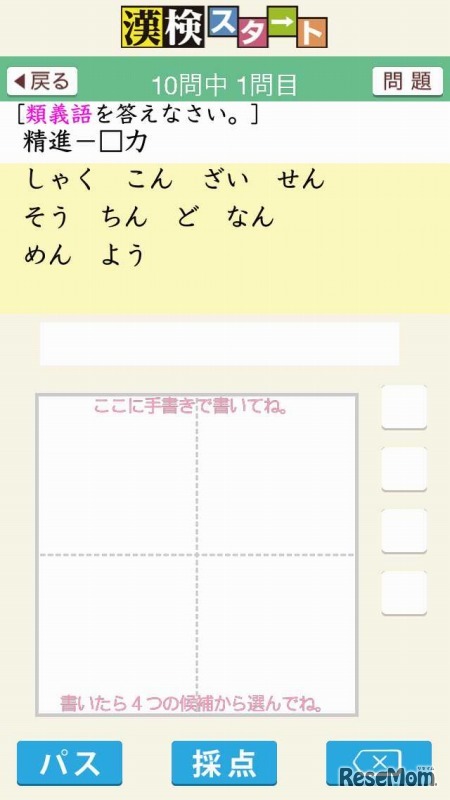 漢検スタート
◀戻る
10問中 1問目
問題
[類義語を答えなさい。]
精進－□力
しゃく こん ざい せん
そう ちん ど なん
めん よう
ここに手書きで書いてね。
書いたら4つの候補から選んでね。
パス
採点
ReseMom.
リセマム